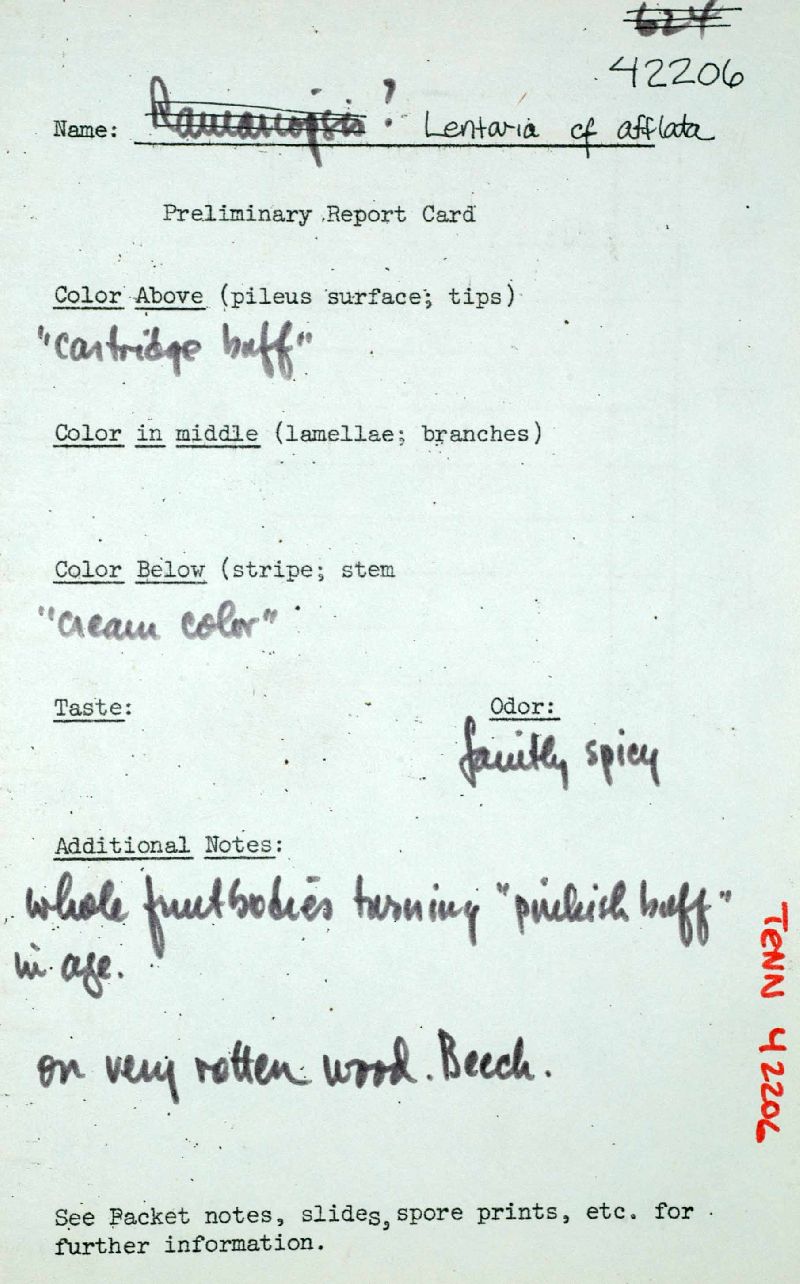 624
42206
Name: Ramariopsis ? Lentaria cf afflata
Preliminary Report Card
Color Above (pileus surface; tips)
"cartridge buff"
Color in middle (lamellae; branches)
Color Below (stripe; stem
"cream color"
Taste: Odor:
faintly spicy
Additional Notes:
whole fruitbodies turning "pinkish buff"
in age.
on very rotten wood. Beech.
TENN 42206
See Packet notes, slides, spore prints, etc. for
further information.